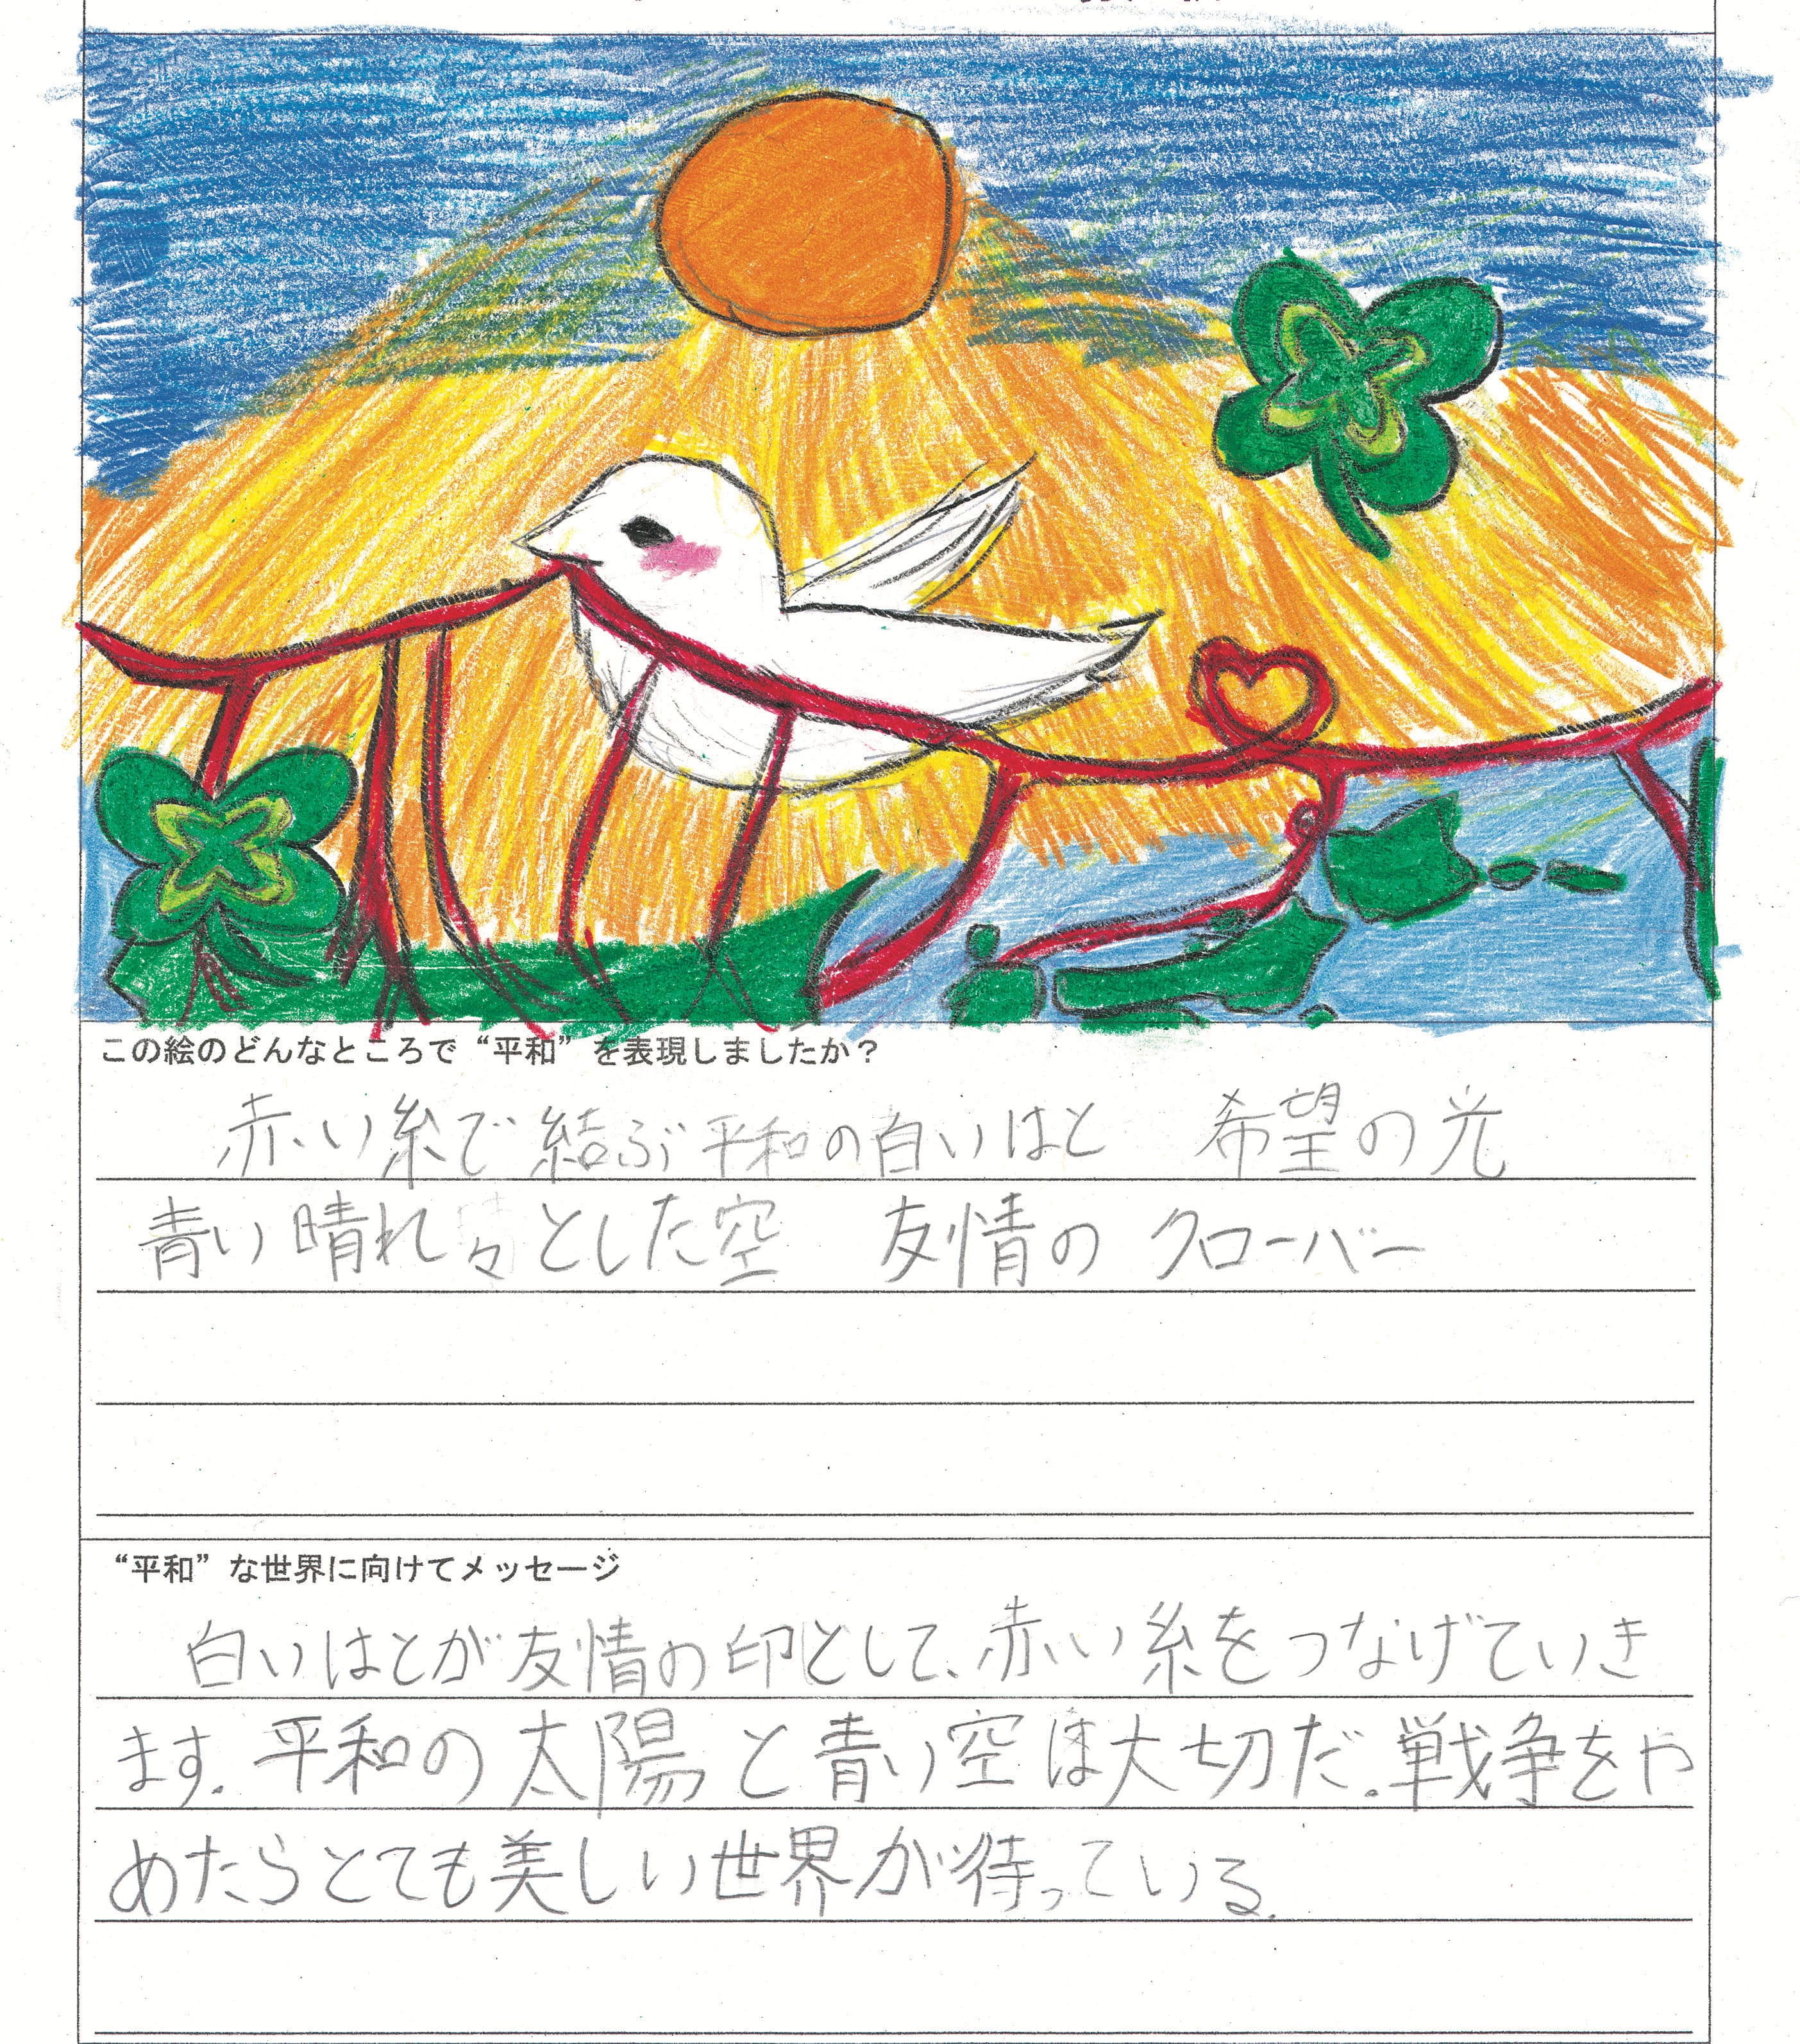 この絵のどんなところで“平和”を表現しましたか？
赤い糸で結ぶ平和の白いはと　希望の光
青い晴れ々とした空　友情のクローバー
“平和”な世界に向けてメッセージ
白いはとが友情の印として、赤い糸をつなげていき
ます。平和の太陽と青い空は大切だ。戦争をや
めたらとても美しい世界が待っている。